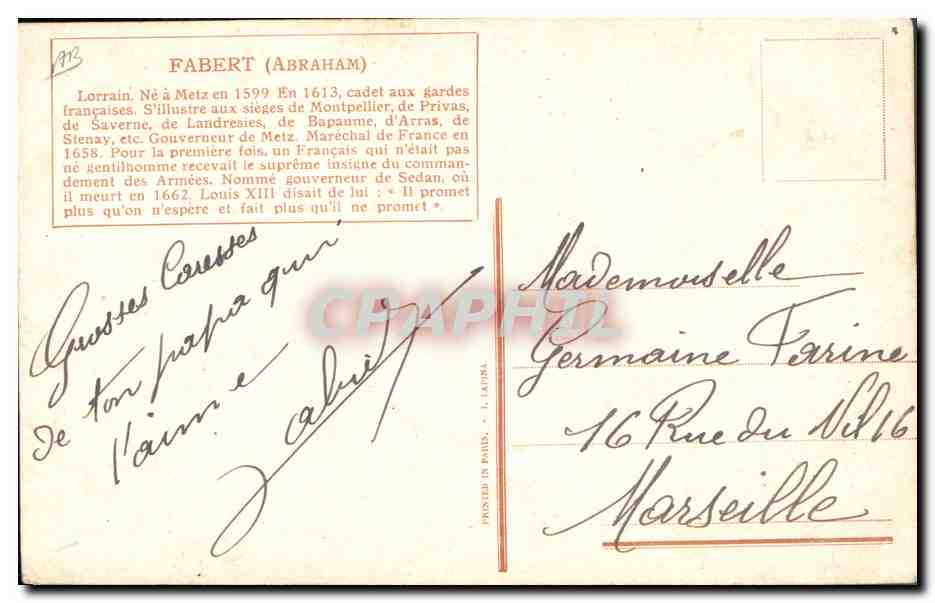 AB
FABERT (ABRAHAM)
Lorrain. Né à Metz en 1599 En 1613, cadet aux gardes
françaises. S'illustre aux sièges de Montpellier, de Privas,
de Saverne, de Landresies, de Bapaume, d'Arras, de
Stenay, etc. Gouverneur de Metz. Maréchal de France en
1658. Pour la première fois, un Français qui n'était pas
né gentilhomme recevait le suprême insigne du comman-
dement des Armées. Nommé gouverneur de Sedan, où
il meurt en 1662. Louis XIII disait de lui : « Il promet
plus qu'on n'espère et fait plus qu'il ne promet ».
Grosses Caresses
de ton papa qui
t'aime
CPAPHIL
PRINTED IN PARIS. - I. LAPINA.
Mademoiselle
Germaine Farine
16 Rue du Nil 16
Marseille